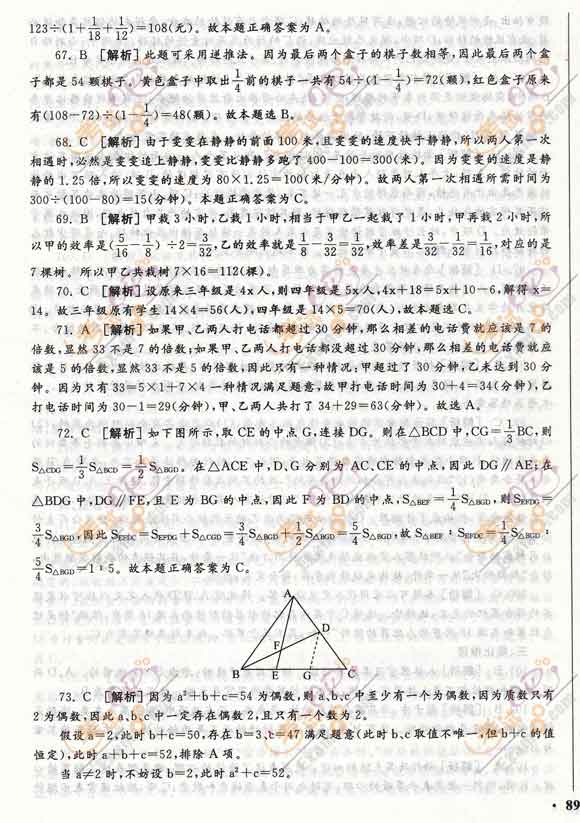 123÷(1+1/18+1/12)=108(元)。故本题正确答案为 A。
67. B [解析]此题可采用逆推法。因为最后两个盒子的棋子数相等,因此最后两个盒
子都是 54 颗棋子。黄色盒子中取出1/4前的棋子一共有 54÷(1−1/4)=72(颗),红色盒子原来
有(108−72)÷(1−1/4)=48(颗)。故本题选 B。
68. C [解析]由于雯雯在静静的前面 100 米,且雯雯的速度快于静静,所以两人第一次
相遇时,必然是雯雯追上静静,雯雯比静静多跑了 400−100=300(米)。因为雯雯的速度是静
静的 1.25 倍,所以雯雯的速度为 80×1.25=100(米/分钟)。故两人第一次相遇所需时间为
300÷(100−80)=15(分钟)。本题正确答案为 C。
69. B [解析]甲栽 3 小时,乙栽 1 小时,相当于甲乙一起栽了 1 小时,甲再栽 2 小时,所
以甲的效率是(5/16−1/8)÷2=3/32,乙的效率就是1/8−3/32=1/32,效率差是3/32−1/32=1/16,对应的是
7 棵树。所以甲乙共栽树 7×16=112(棵)。
70. C [解析]设原来三年级是 4x 人,则四年级是 5x 人,4x+18=5x+10−6,解得 x=
14。故三年级原有学生 14×4=56(人),四年级是 14×5=70(人),故本题选 C。
71. A [解析]如果甲、乙两人打电话都超过 30 分钟,那么相差的电话费就应该是 7 的
倍数,显然 33 不是 7 的倍数;如果甲、乙两人打电话都没超过 30 分钟,那么相差的电话费就应
该是 5 的倍数,显然 33 不是 5 的倍数,因此只有一种情况:甲超过了 30 分钟,乙未达到 30 分
钟。因为只有 33=5×1+7×4 一种情况满足题意,故甲打电话时间为 30+4=34(分钟),乙
打电话时间为 30−1=29(分钟),甲、乙两人共打了 34+29=63(分钟)。故选 A。
72. C [解析]如下图所示,取 CE 的中点 G,连接 DG。则在△BCD 中,CG=1/3BC,则
S△CDG=1/3S△BCD=1/2S△BGD。在△ACE 中,D、G 分别为 AC、CE 的中点,因此 DG∥AE;在
△BDG 中,DG∥FE,且 E 为 BG 的中点,因此 F 为 BD 的中点,S△BEF=1/4S△BGD,则 SEFDG=
3/4S△BGD,因此 SEFDC=SEFDG+S△CGD=3/4S△BGD+1/2S△BGD=5/4S△BGD,故 S△BEF∶SEFDC=1/4S△BGD∶
5/4S△BGD=1∶5。故本题正确答案为 C。
A
D
F
B E G C
73. C [解析]因为 a²+b+c=54 为偶数,则 a、b、c 中至少有一个为偶数,因为质数只有
2 为偶数,因此 a、b、c 中一定存在偶数 2,且只有一个数为 2。
假设 a=2,此时 b+c=50,存在 b=3、c=47 满足题意(此时 b、c 取值不唯一,但 b+c 的值
恒定),此时 a+b+c=52,排除 A 项。
当 a≠2 时,不妨设 b=2,此时 a²+c=52。
· 89